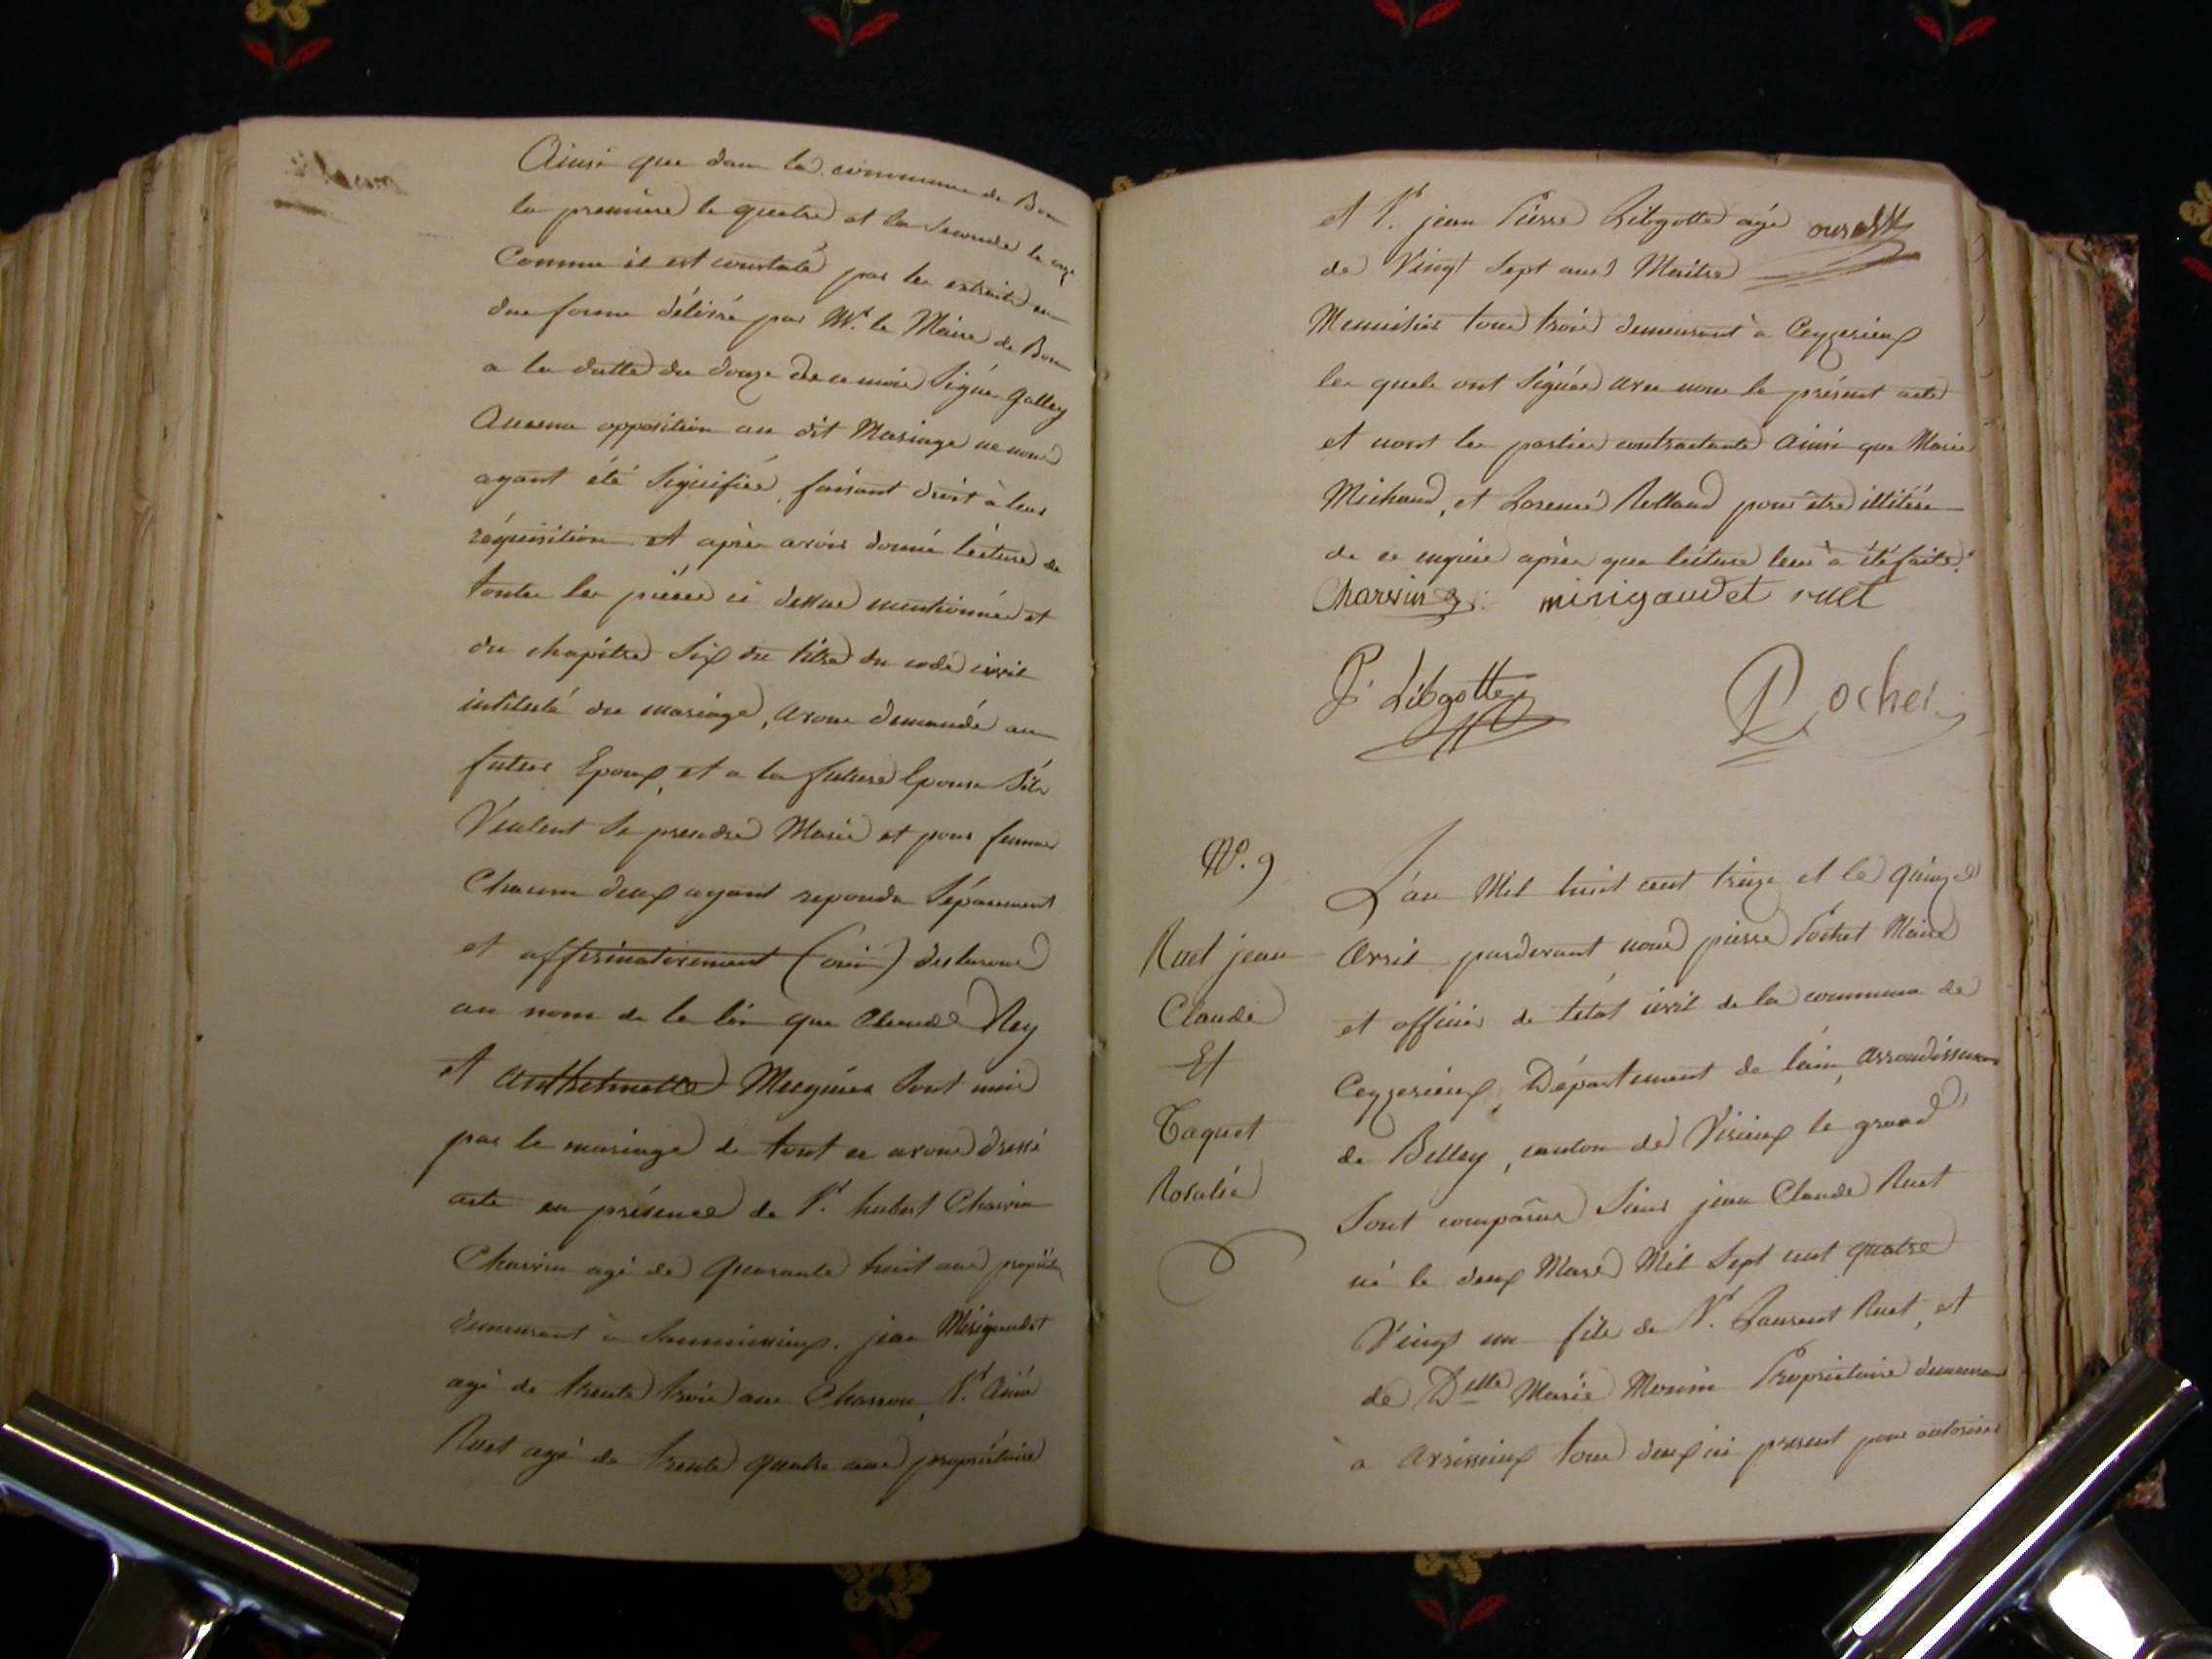 Ainsi que dans la commune de Bon
la premiere le quatre et la seconde le onze
Comme il est constaté par les extraits en
due forme délivré par Mr. le Maire de Bon
a la datte du douze de ce mois Signé Galley
Aucune opposition au dit Mariage ne nous
ayant été Signifiée, faisant droit à leur
réquisition et après avoir donné lécture de
toutes les pièces ci dessus mentionnée et
du chapitre Six du titre du code civil
intitulé du mariage, avons demandé au
futur Epoux, et a la future Epouse S'ils
Veulent se prendre Marie et pour femme
Chacun deux ayant repondu Séparement
et affirmativement (oui) declarons
au nom de la loi que Claude Rey
et Anthelmette Meugnier sont unis
par le mariage de tout ce avons dressé
acte en présence de Sr. hubert Charvin
Charvin agé de quarante huit ans propriétr
demeurant à jean Mirigaudet
agé de trente trois ans Charron, Sr. Aimé
Ruet agé de trente quatre ans propriétaire
et Sr. jean Pierre Libgotte agé
de Vingt Sept ans Maitre
Menuisier tous trois demeurant à Ceyzerieux
les quels ont Signés avec nous le présent acte
et nont les parties contractante Ainsi que Marie
Michaud, et Rolland pour être illitéré
de ce enquis après que lécture leur à été faite.
Charvin mirigaudet ruet
P. Libgotte Pochet
N°. 9
Ruet jean
Claude
Et
Taquet
Rosalie
L'an Mil huit cent treize et le quinze
Avril pardevant nous pierre Pochet Maire
et officier de l'étât civil de la commune de
Ceyzerieux, Département de l'ain, arrondissement
de Belley, canton de Virieux le grand
Sont comparus Sieur jean Claude Ruet
né le deux Mars Mil Sept cent quatre
Vingt un fils de Sr. Laurent Ruet, et
de Delle Marie Morin Propriétaire demeurant
à Avrissieux tous deux ici présent pour autoriser